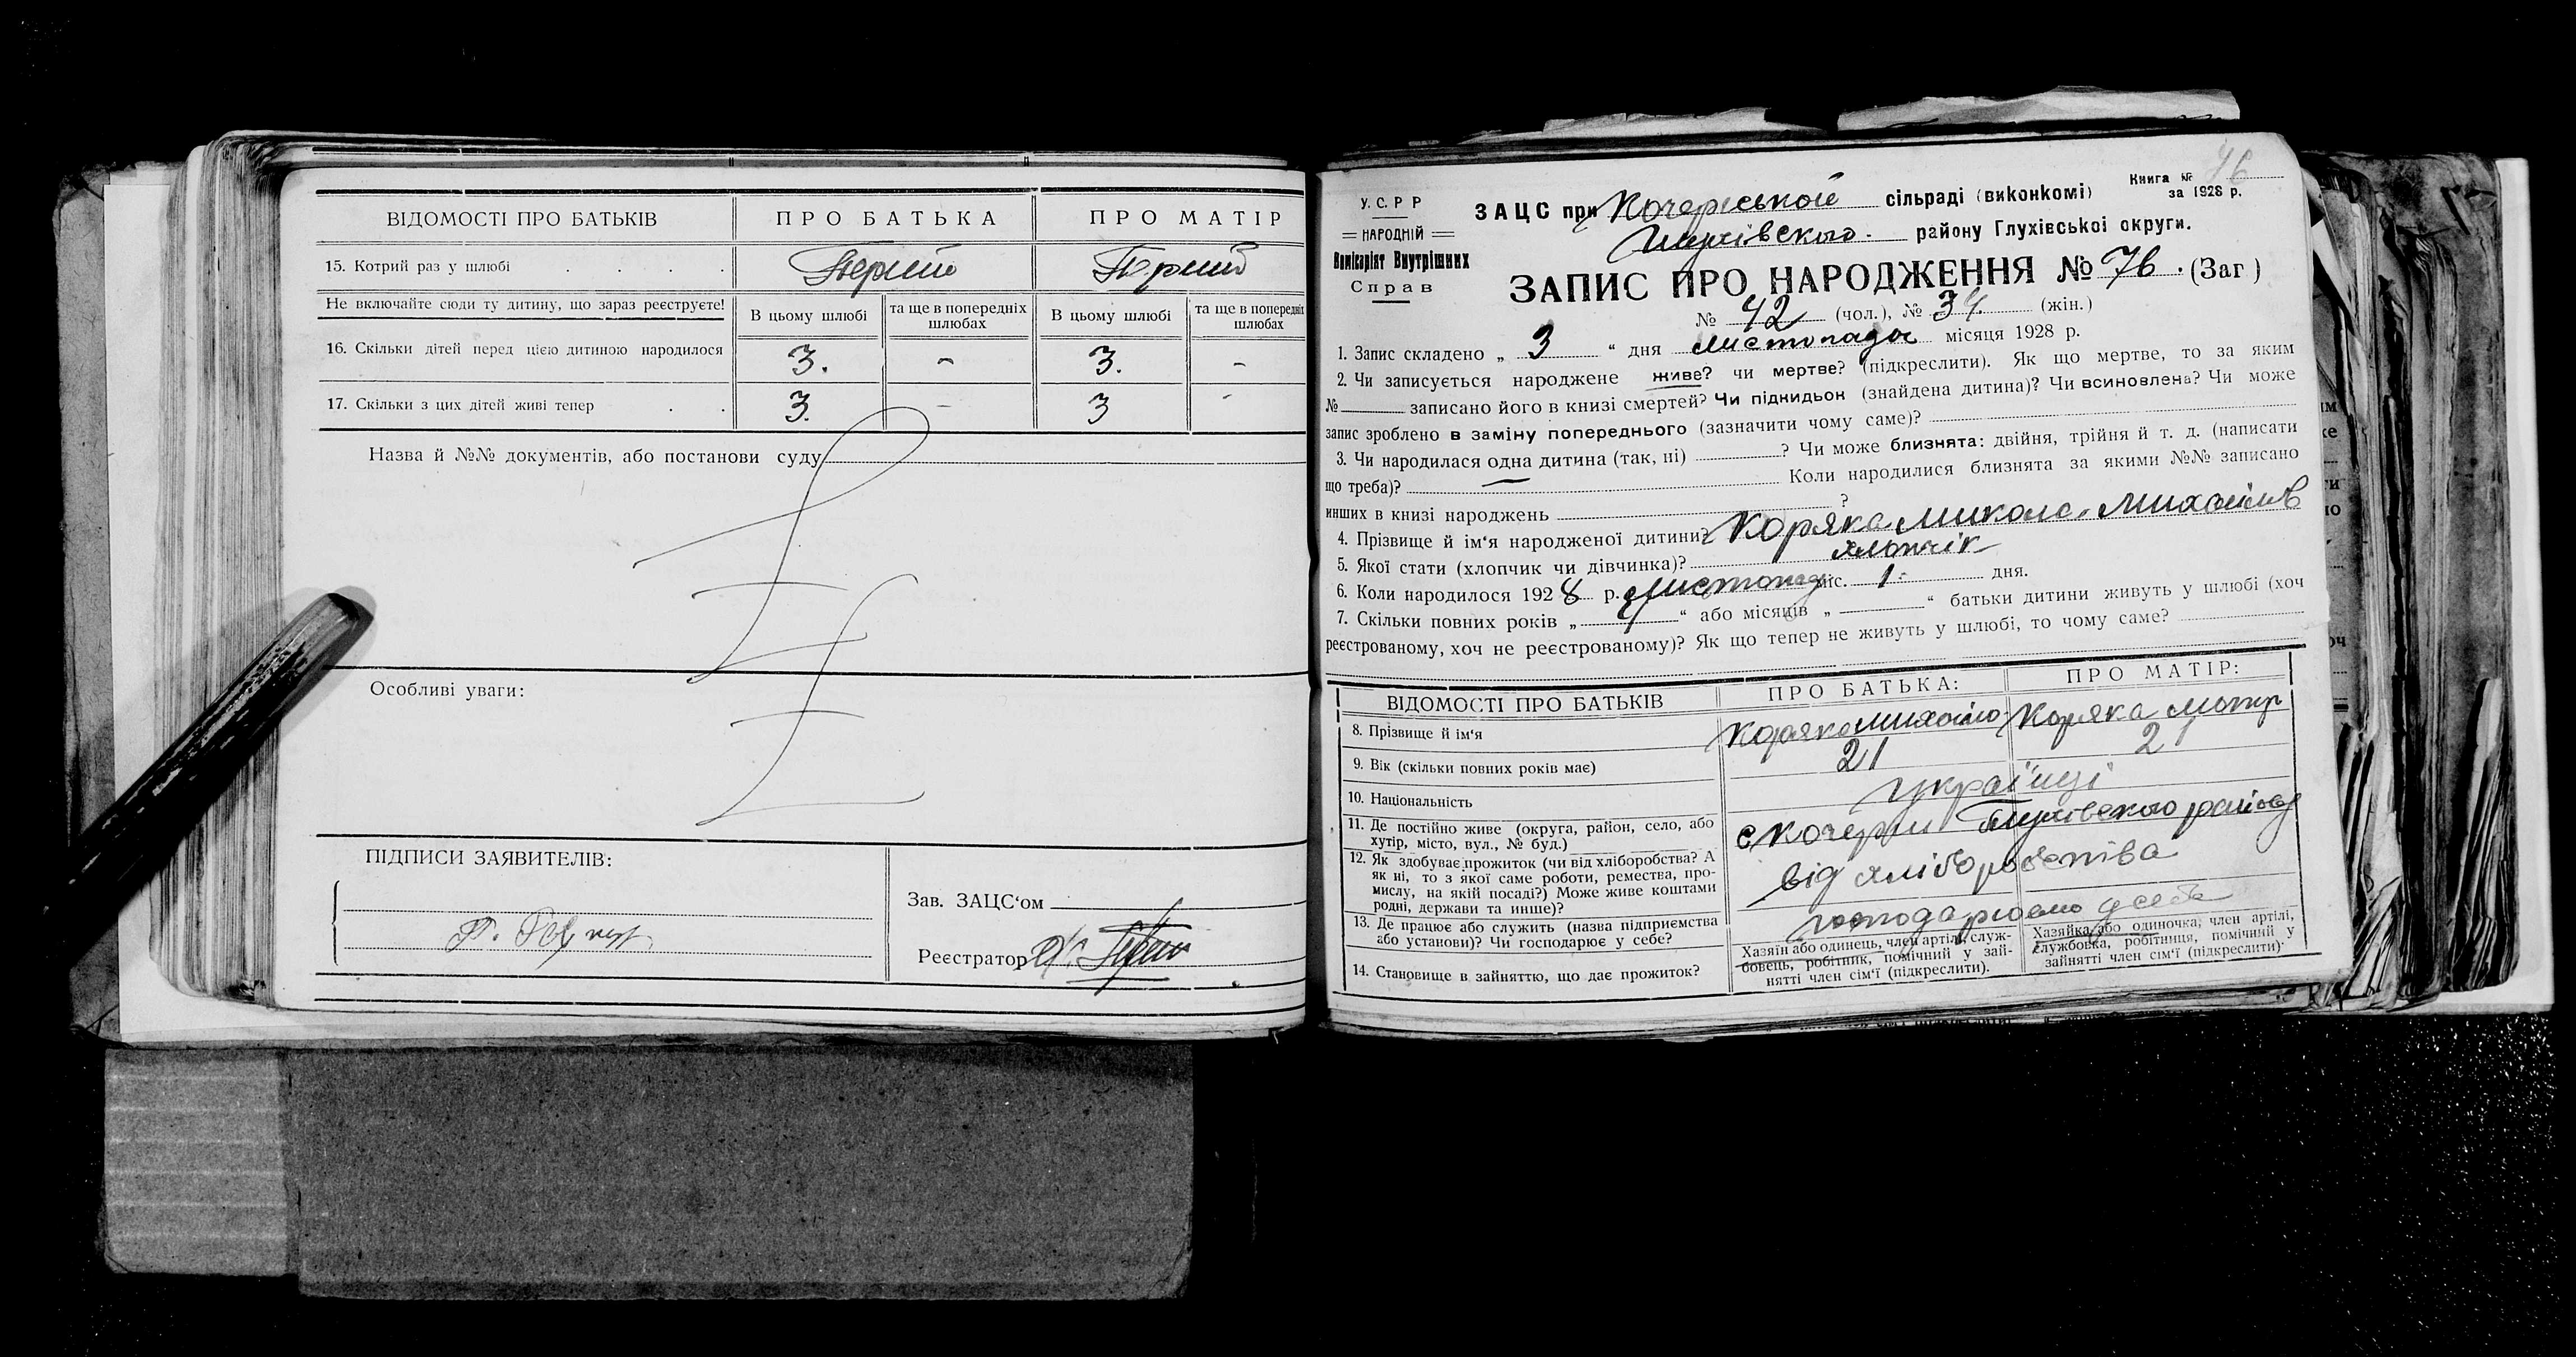 ВІДОМОСТІ ПРО БАТЬКІВ ПРО БАТЬКА ПРО МАТІР
15. Котрий раз у шлюбі
Не включайте сюди ту дитину, що зараз реєструєте! В цьому шлюбі та ще в попередніх шлюбах В цьому шлюбі та ще в попередніх шлюбах
16. Скільки дітей перед цією дитиною народилося 3. - 3. -
17. Скільки з цих дітей живі тепер 3. - 3 -
Назва й №№ документів, або постанови суду
Особливі уваги:
ПІДПИСИ ЗАЯВИТЕЛІВ:
Зав. ЗАЦС‘ом
Реєстратор
46
Книга №
за 1928 р.
У. С. Р. Р
НАРОДНІЙ
Комісаріят Внутрішних
Справ
ЗАЦС при сільраді (виконкомі)
району Глухівської округи.
ЗАПИС ПРО НАРОДЖЕННЯ № 76. (Заг)
№ 42 (чол.), № 34. (жін.)
1. Запис складено „ 3 “ дня листопада місяця 1928 р.
2. Чи записується народжене живе? чи мертве? (підкреслити). Як що мертве, то за яким
№ записано його в книзі смертей? Чи підкидьок (знайдена дитина)? Чи всиновлена? Чи може
запис зроблено в заміну попереднього (зазначити чому саме)?
3. Чи народилася одна дитина (так, ні) ? Чи може близнята: двійня, трійня й т. д. (написати
що треба)? Коли народилися близнята за якими №№ записано
инших в книзі народжень ?
4. Прізвище й ім‘я народженої дитини? Коряка Микола Михайлів
5. Якої стати (хлопчик чи дівчинка)? хлопчік
6. Коли народилося 1928 р. Листопад міс. 1 дня.
7. Скільки повних років „ “ або місяців „ “ батьки дитини живуть у шлюбі (хоч
реєстрованому, хоч не реєстрованому)? Як що тепер не живуть у шлюбі, то чому саме?
ВІДОМОСТІ ПРО БАТЬКІВ ПРО БАТЬКА: ПРО МАТІР:
8. Прізвище й ім‘я Коряка Михайло Коряка Мотир
9. Вік (скільки повних років має) 21 21
10. Національність українці
11. Де постійно живе (округа, район, село, або
хутір, місто, вул., № буд.) с Кочерги району
12. Як здобуває прожиток (чи від хліборобства? А
як ні, то з якої саме роботи, ремества, про-
мислу, на якій посаді?) Може живе коштами
родні, держави та инше)? від хліборобства
13. Де працює або служить (назва підприємства
або установи)? Чи господарює у себе? господарюємо у себе
14. Становище в зайняттю, що дає прожиток?
Хазяїн або одинець, член артілі, служ-
бовець, робітник, помічний у зай-
нятті член сім‘ї (підкреслити).
Хазяйка, або одиночка, член артілі,
службовка, робітниця, помічний у
зайнятті член сім‘ї (підкреслити).